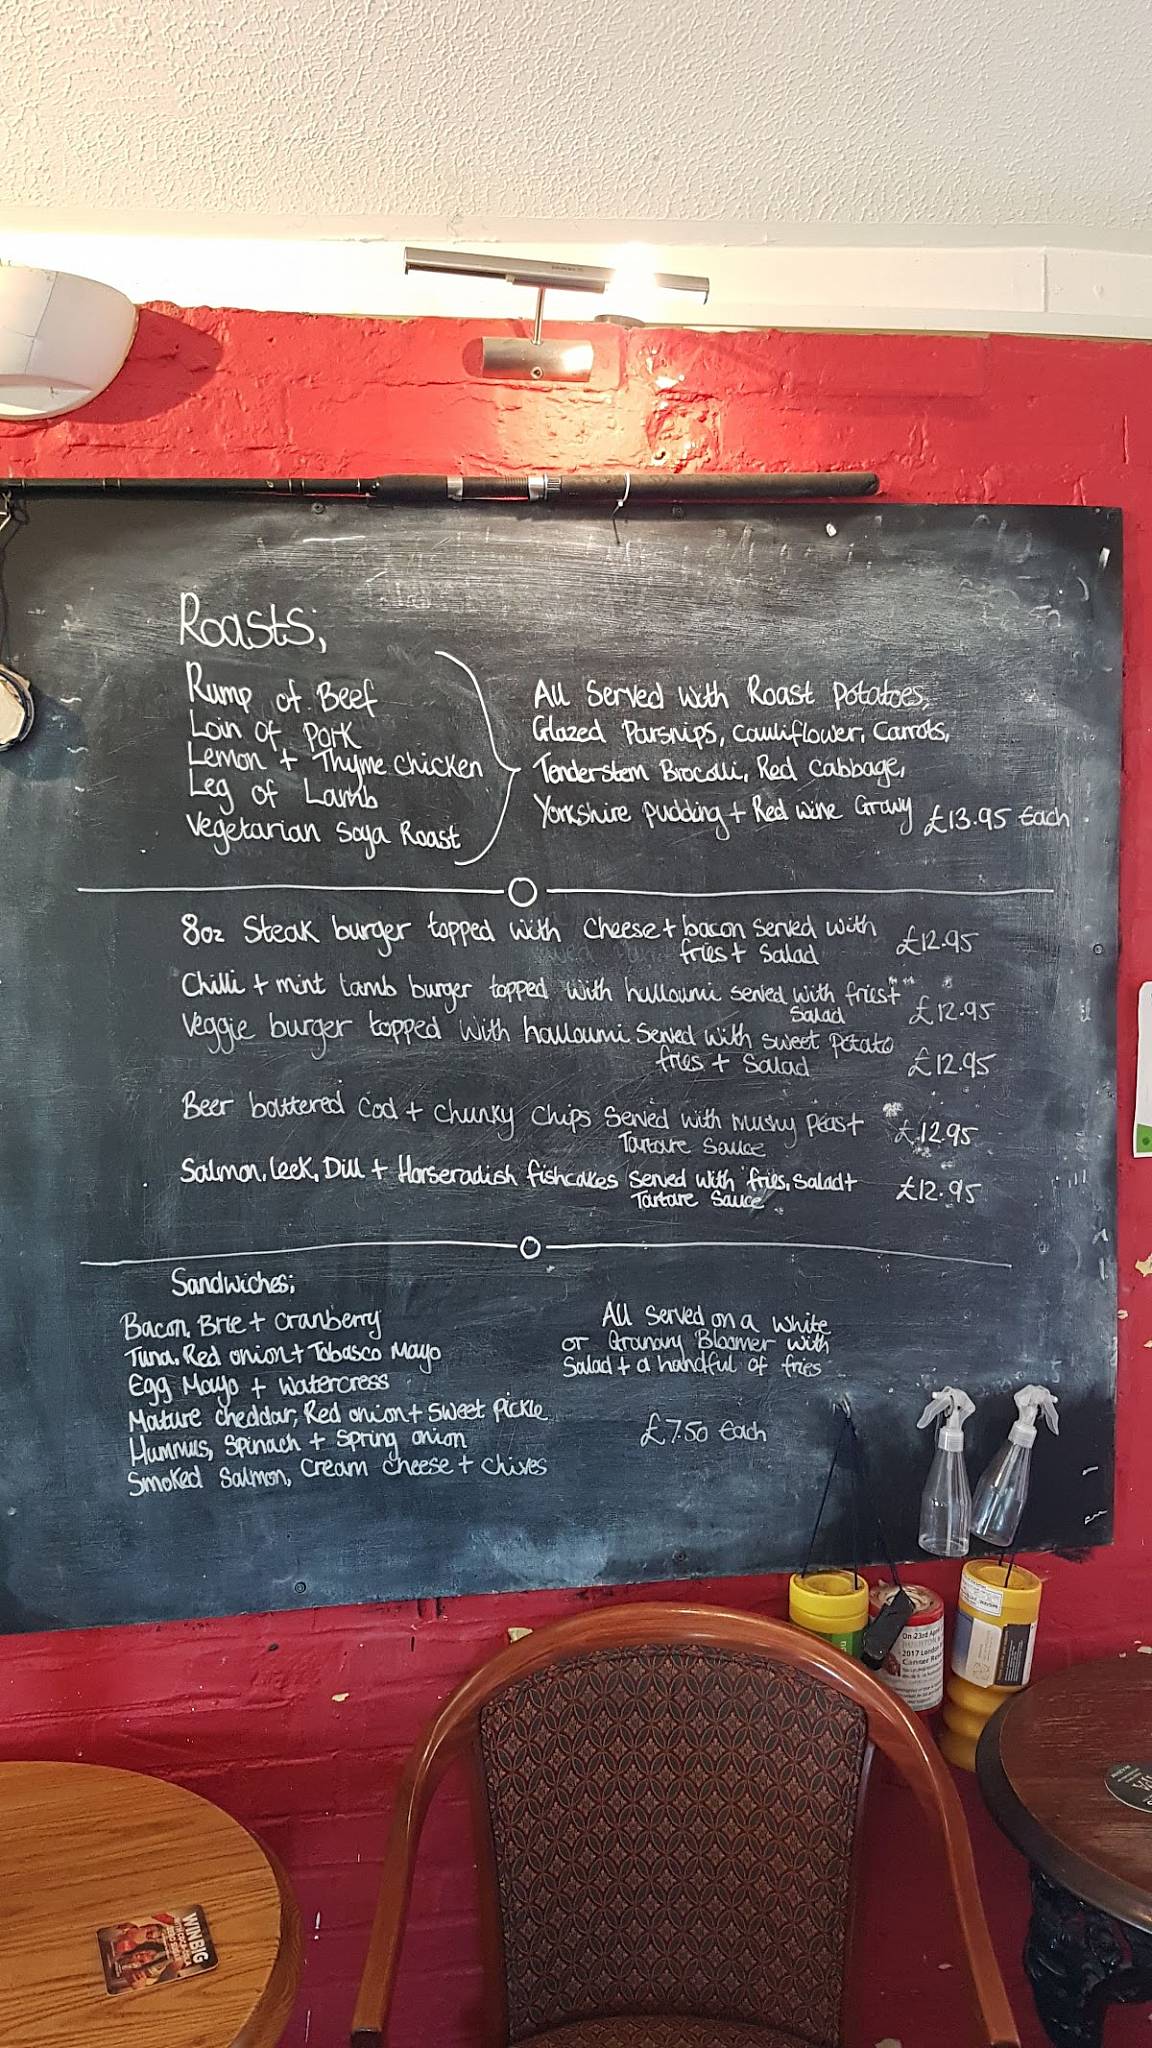 Roasts;
Rump of Beef
Loin of Pork
Lemon + Thyme chicken
Leg of Lamb
Vegetarian Soya Roast
All Served with Roast Potatoes,
Glazed Parsnips, cauliflower, Carrots,
Tenderstem Brocolli, Red Cabbage,
Yorkshire pudding + Red wine Gravy £13.95 Each
8oz Steak burger topped with cheese + bacon served with
fries + Salad £12.95
Chilli + mint Lamb burger topped with halloumi served with fries +
Salad £12.95
Veggie burger topped with halloumi served with sweet potato
fries + Salad £12.95
Beer battered Cod + chunky chips Served with mushy Peas +
Tartare Sauce £12.95
Salmon, Leek, Dill + Horseradish fishcakes served with fries, salad +
Tartare Sauce £12.95
Sandwiches;
Bacon, Brie + Cranberry
Tuna, Red onion + Tobasco Mayo
Egg Mayo + Watercress
Mature cheddar, Red onion + Sweet pickle
Hummus, Spinach + Spring onion
Smoked Salmon, Cream cheese + chives
All Served on a white
or Granary Bloomer with
Salad + a handful of fries
£7.50 Each
On 23rd April
2017 London
Cancer Res
WIN BIG